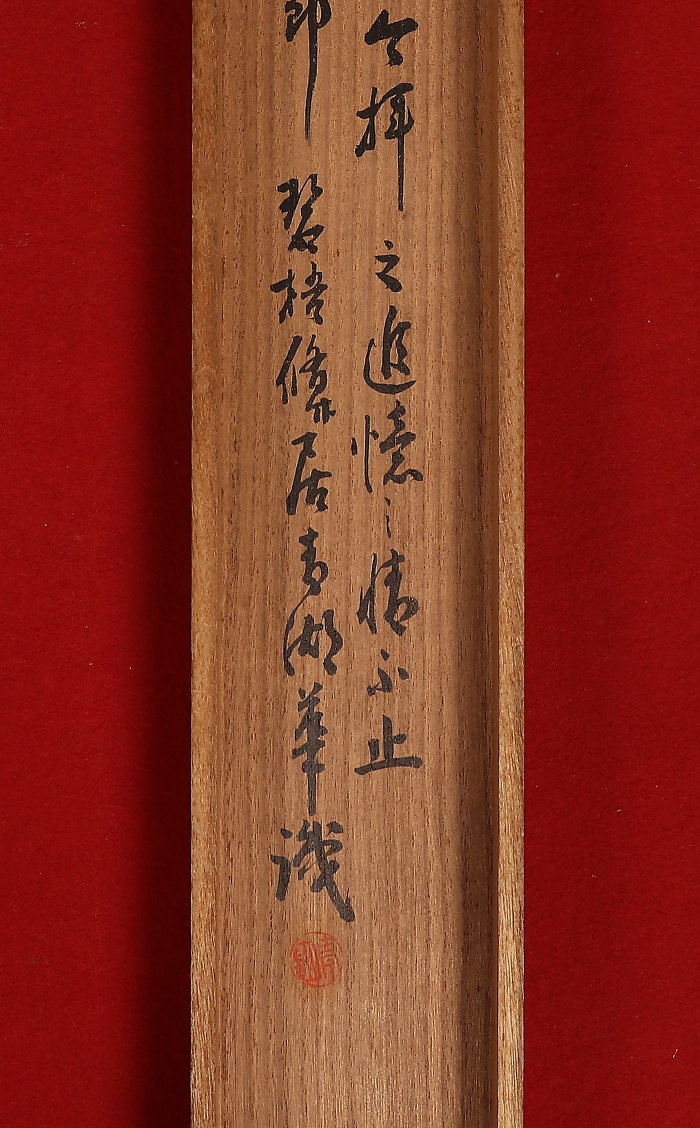 今拝之追憶之情不止
郎 碧梧條居青湖華識